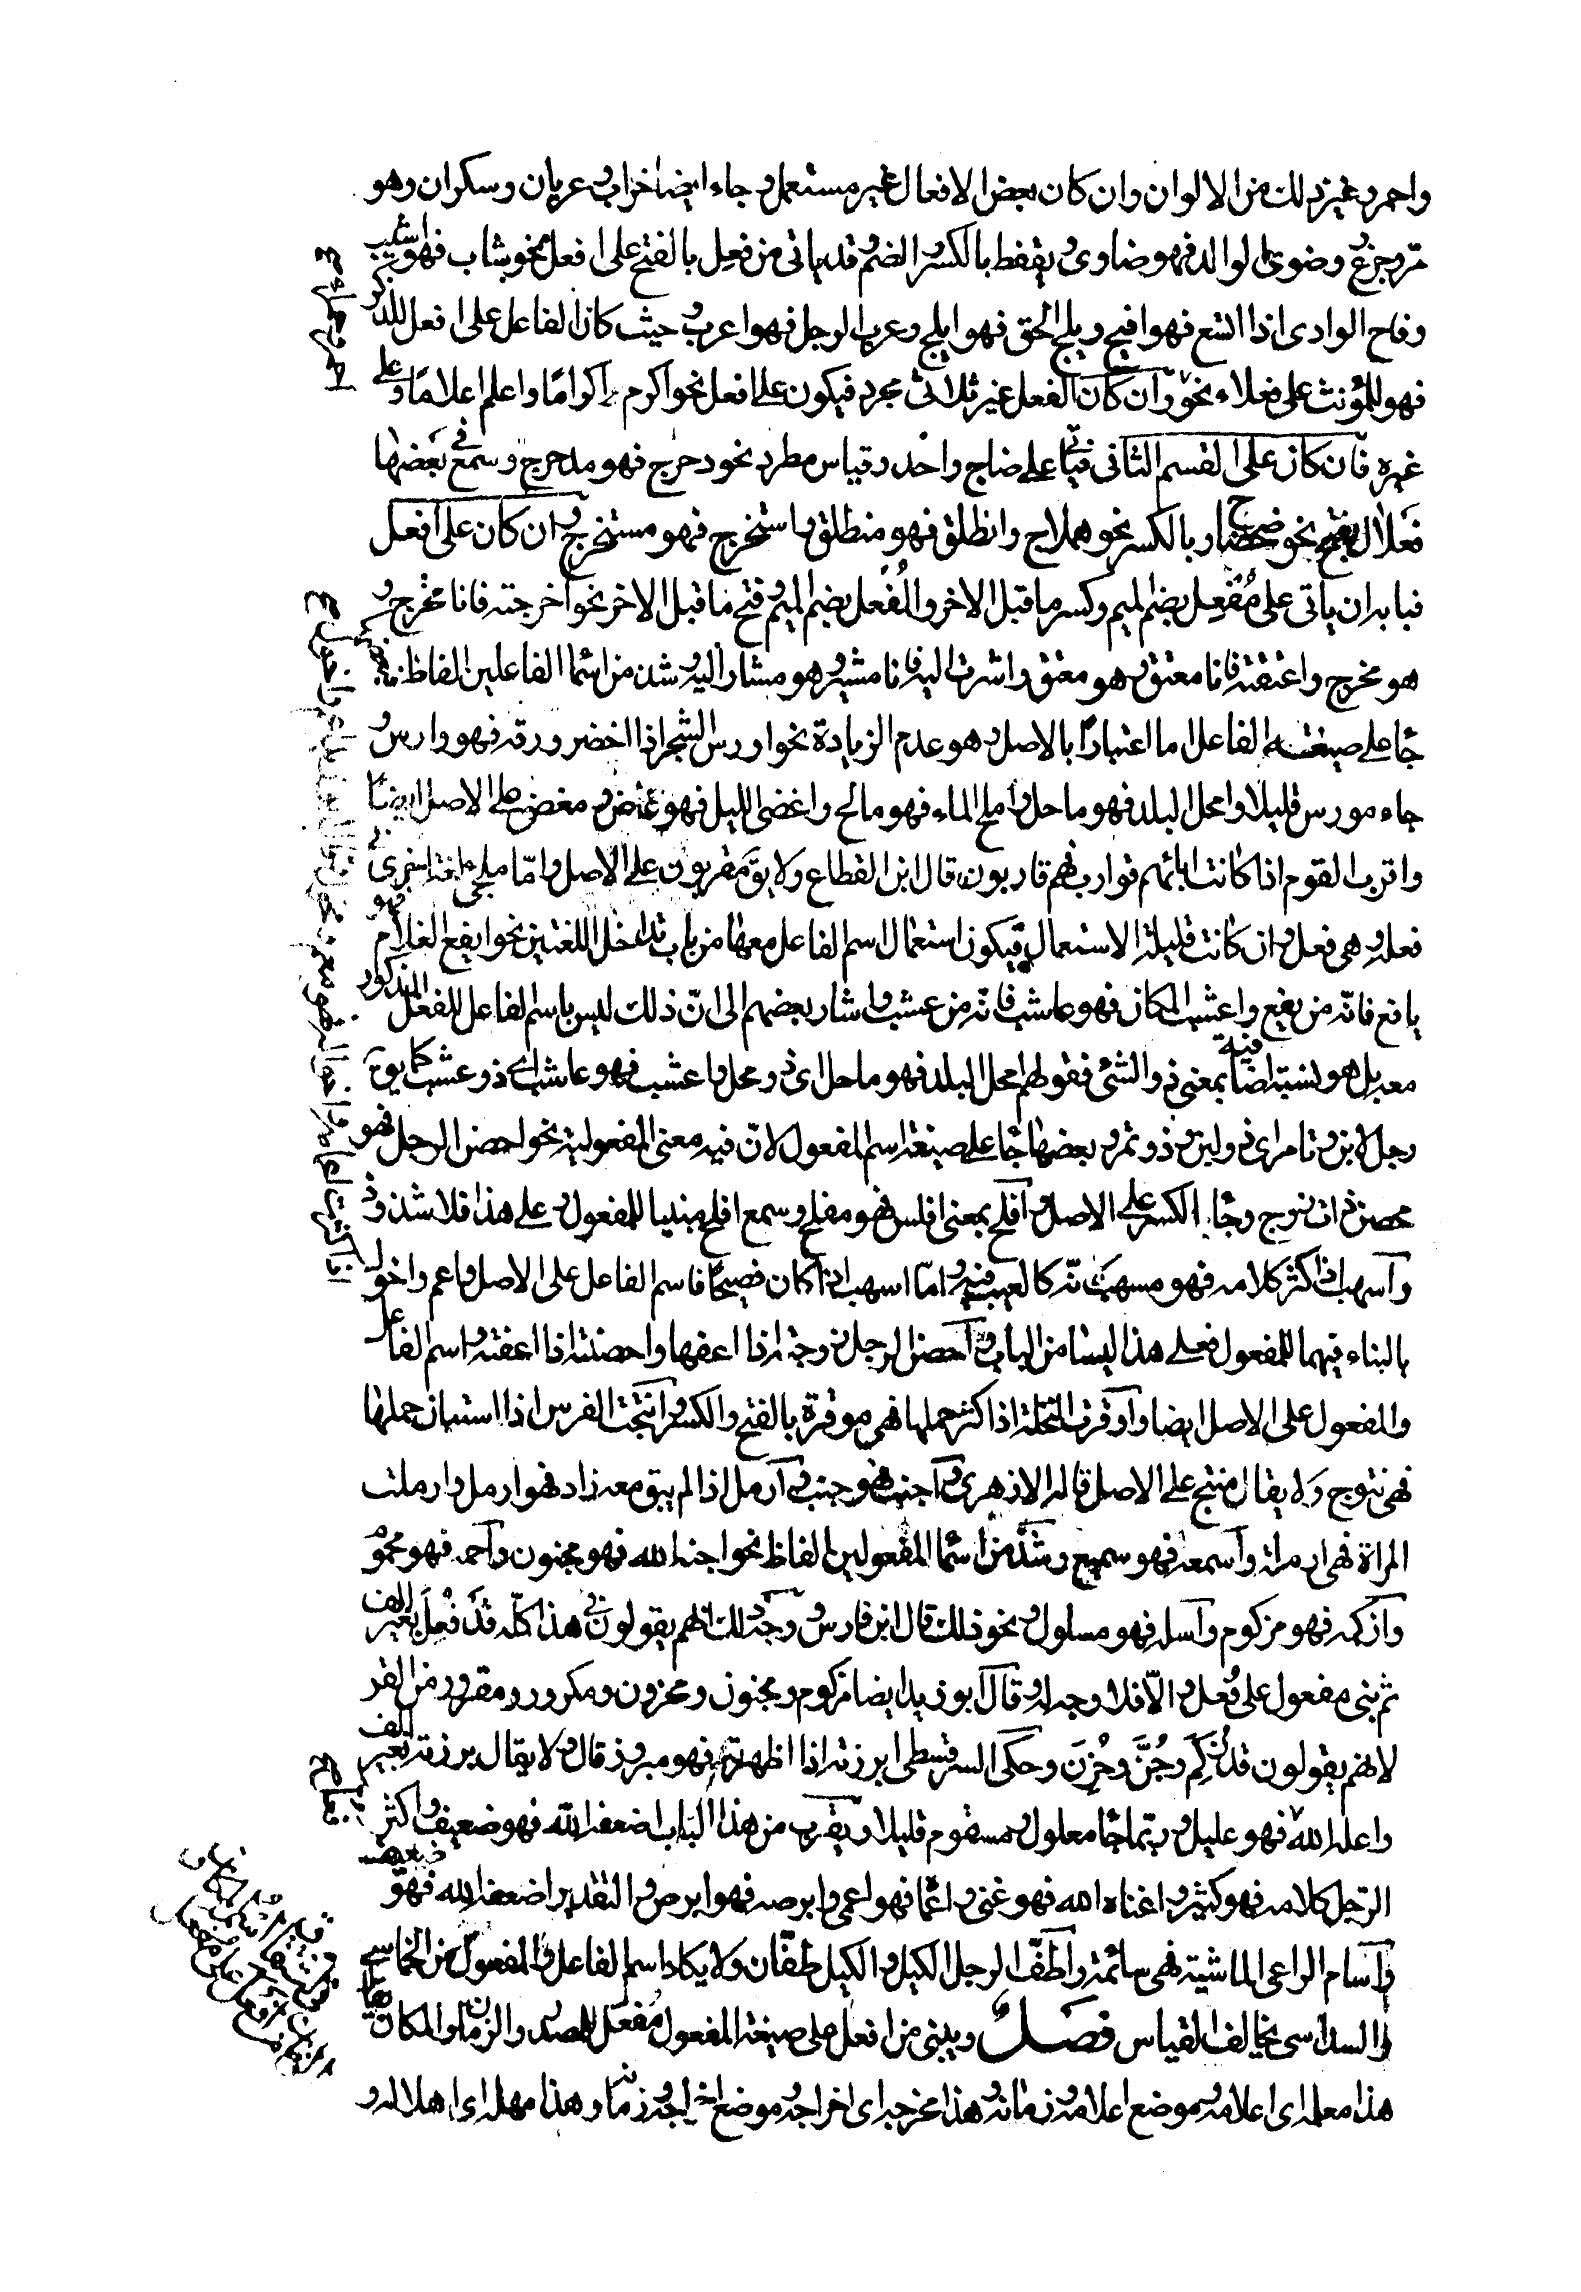 واحمر وغير ذلك من الالوان وان كان بعض الافعال غير مستعمل و جاء ايضا خراب و عريان وسكران وهو
مرّ وجزع وضوى الولد فهو ضاوى و يقظ بالكسر والضم و قد ياتى من فعل بالفتح على افعل نحو شاب فهو اشيب
وفاح الوادى اذا اتسع فهو افيح وبلج الحق فهو ابلج وعرب الرجل فهو اعرب و حيث كان الفاعل على افعل للمذكر
فهو للمؤنث على فعلاء نحو وان كان الفعل غير ثلاثى مجرد فيكون على افعل نحو اكرم اكرامًا واعلم اعلامًا وعلى
غيره فان كان على القسم الثانى فياتى على منهاج واحد وقياس مطرد نحو دحرج فهو مدحرج وسمع فى بعضها
فعلال بالفتح نحو ضحضاح و بالكسر نحو هملاج وانطلق فهو منطلق و استخرج فهو مستخرج و ان كان على افعل
فبابه ان ياتى على مُفعِل بضم الميم وكسر ما قبل الاخر والمُفعَل بضم الميم و فتح ما قبل الاخر نحو اخرجته فانا مخرج و
هو مخرج واعتقته فانا معتق و هو معتق واشرت اليه فانا مشير و هو مشار اليه و شذ من اسما الفاعلين الفاظ فبعضها
جا على صيغة الفاعل اما اعتبارًا بالاصل و هو عدم الزيادة نحو اورس الشجر اذا اخضر ورقه فهو وارس و
جاء مورس قليلا وامحل البلد فهو ماحل و املح الماء فهو مالح واغضى الليل فهو غاض و مغض على الاصل ايضًا
واقرب القوم اذا كانت ابلهم قوارب فهم قاربون قال ابن القطاع ولا يق مقربون على الاصل و امّا مجى لغة اخرى فى
فعله و هى فعل و ان كانت قليلة الاستعمال فيكون استعمال اسم الفاعل معها من باب تداخل اللغتين نحو ايفع الغلام فهو
يافع فانّه من يفع واعشب المكان فهو عاشب فانّه من عشب و اشار بعضهم الى انّ ذلك ليس باسم الفاعل للفعل المذكور
معه بل هو نسبة اضافية بمعنى ذو الشئ فقولهم امحل البلد فهو ماحل اى ذو محل و اعشب فهو عاشب اى ذو عشب كما يق
رجل لابن و تامر اى ذو لبن و ذو تمر و بعضها جا على صيغة اسم المفعول لانّ فيه معنى المفعولية نحو احصن الرجل فهو
محصن اذا تزوج وجا الكسر على الاصل و افلج بمعنى افلس فهو مفلج وسمع افلج مبنيا للمفعول و على هذا فلا شذوذ
واسهب اذا اكثر كلامه فهو مسهب لانّه كالعيب فيه و امّا اسهب اذا كان فصيحًا فاسم الفاعل على الاصل و اعم واخول
بالبناء فيهما للمفعول فعلى هذا ليسا من الباب و احصن الرجل زوجته اذا اعفها واحصنته اذا اعفته و اسم الفاعل
والمفعول على الاصل ايضا واوقرت النخلة اذا كثر حملها فهى موقرة بالفتح والكسر و انتجت الفرس اذا استبان حملها
فهى نتوج ولا يقال منتج على الاصل قاله الازهرى و اجنب فهو جنب و ارمل اذا لم يبق معه زاد فهو ارمل و ارملت
المراة فهى ارملة و اسمعه فهو سميع و شذّ من اسما المفعولين الفاظ نحو اجنه الله فهو مجنون و احمه فهو محموم
وازكمه فهو مزكوم و اسله فهو مسلول و نحو ذلك قال ابن فارس و وجه ذلك انهم يقولون فى هذا كلّه قد فُعِلَ بغير الف
ثم بنى مفعول على فُعل و الّا فلا وجه له و قال ابو زيد ايضا مزكوم و مجنون و محزون ومكزوز ومقرور من القر
لانهم يقولون قد زُكِمَ وجُنَّ وحُزِنَ وحكى السرقسطى ابرزته اذا اظهرته فهو مبروز قال و لا يقال برزته بغير الف
واعله اللّه فهو عليل و ربّما جا معلول و مسقوم قليلا و يقرب من هذا الباب اضعفه اللّه فهو ضعيف و اكثر
الرجل كلامه فهو كثير و اغناه الله فهو غنى و اعما فهو اعمى و ابرصه فهو ابرص و التقدير اضعفه الله فضعف فهو
واسام الراعى الماشية فهى سائمة و اطفّ الرجل الكيل و الكيل طفّان ولا يكاد اسم الفاعل والمفعول من الخماسى
والسداسى يخالف القياس فصل ويبنى من افعل على صيغة المفعول مُفعَل للمصدر والزمان والمكان
هذا معلمه اى اعلامه و موضع اعلامه و زمانه و هذا مخرجه اى اخراجه و موضع اخراجه و زمانه و هذا مهلّه اى اهلاله و